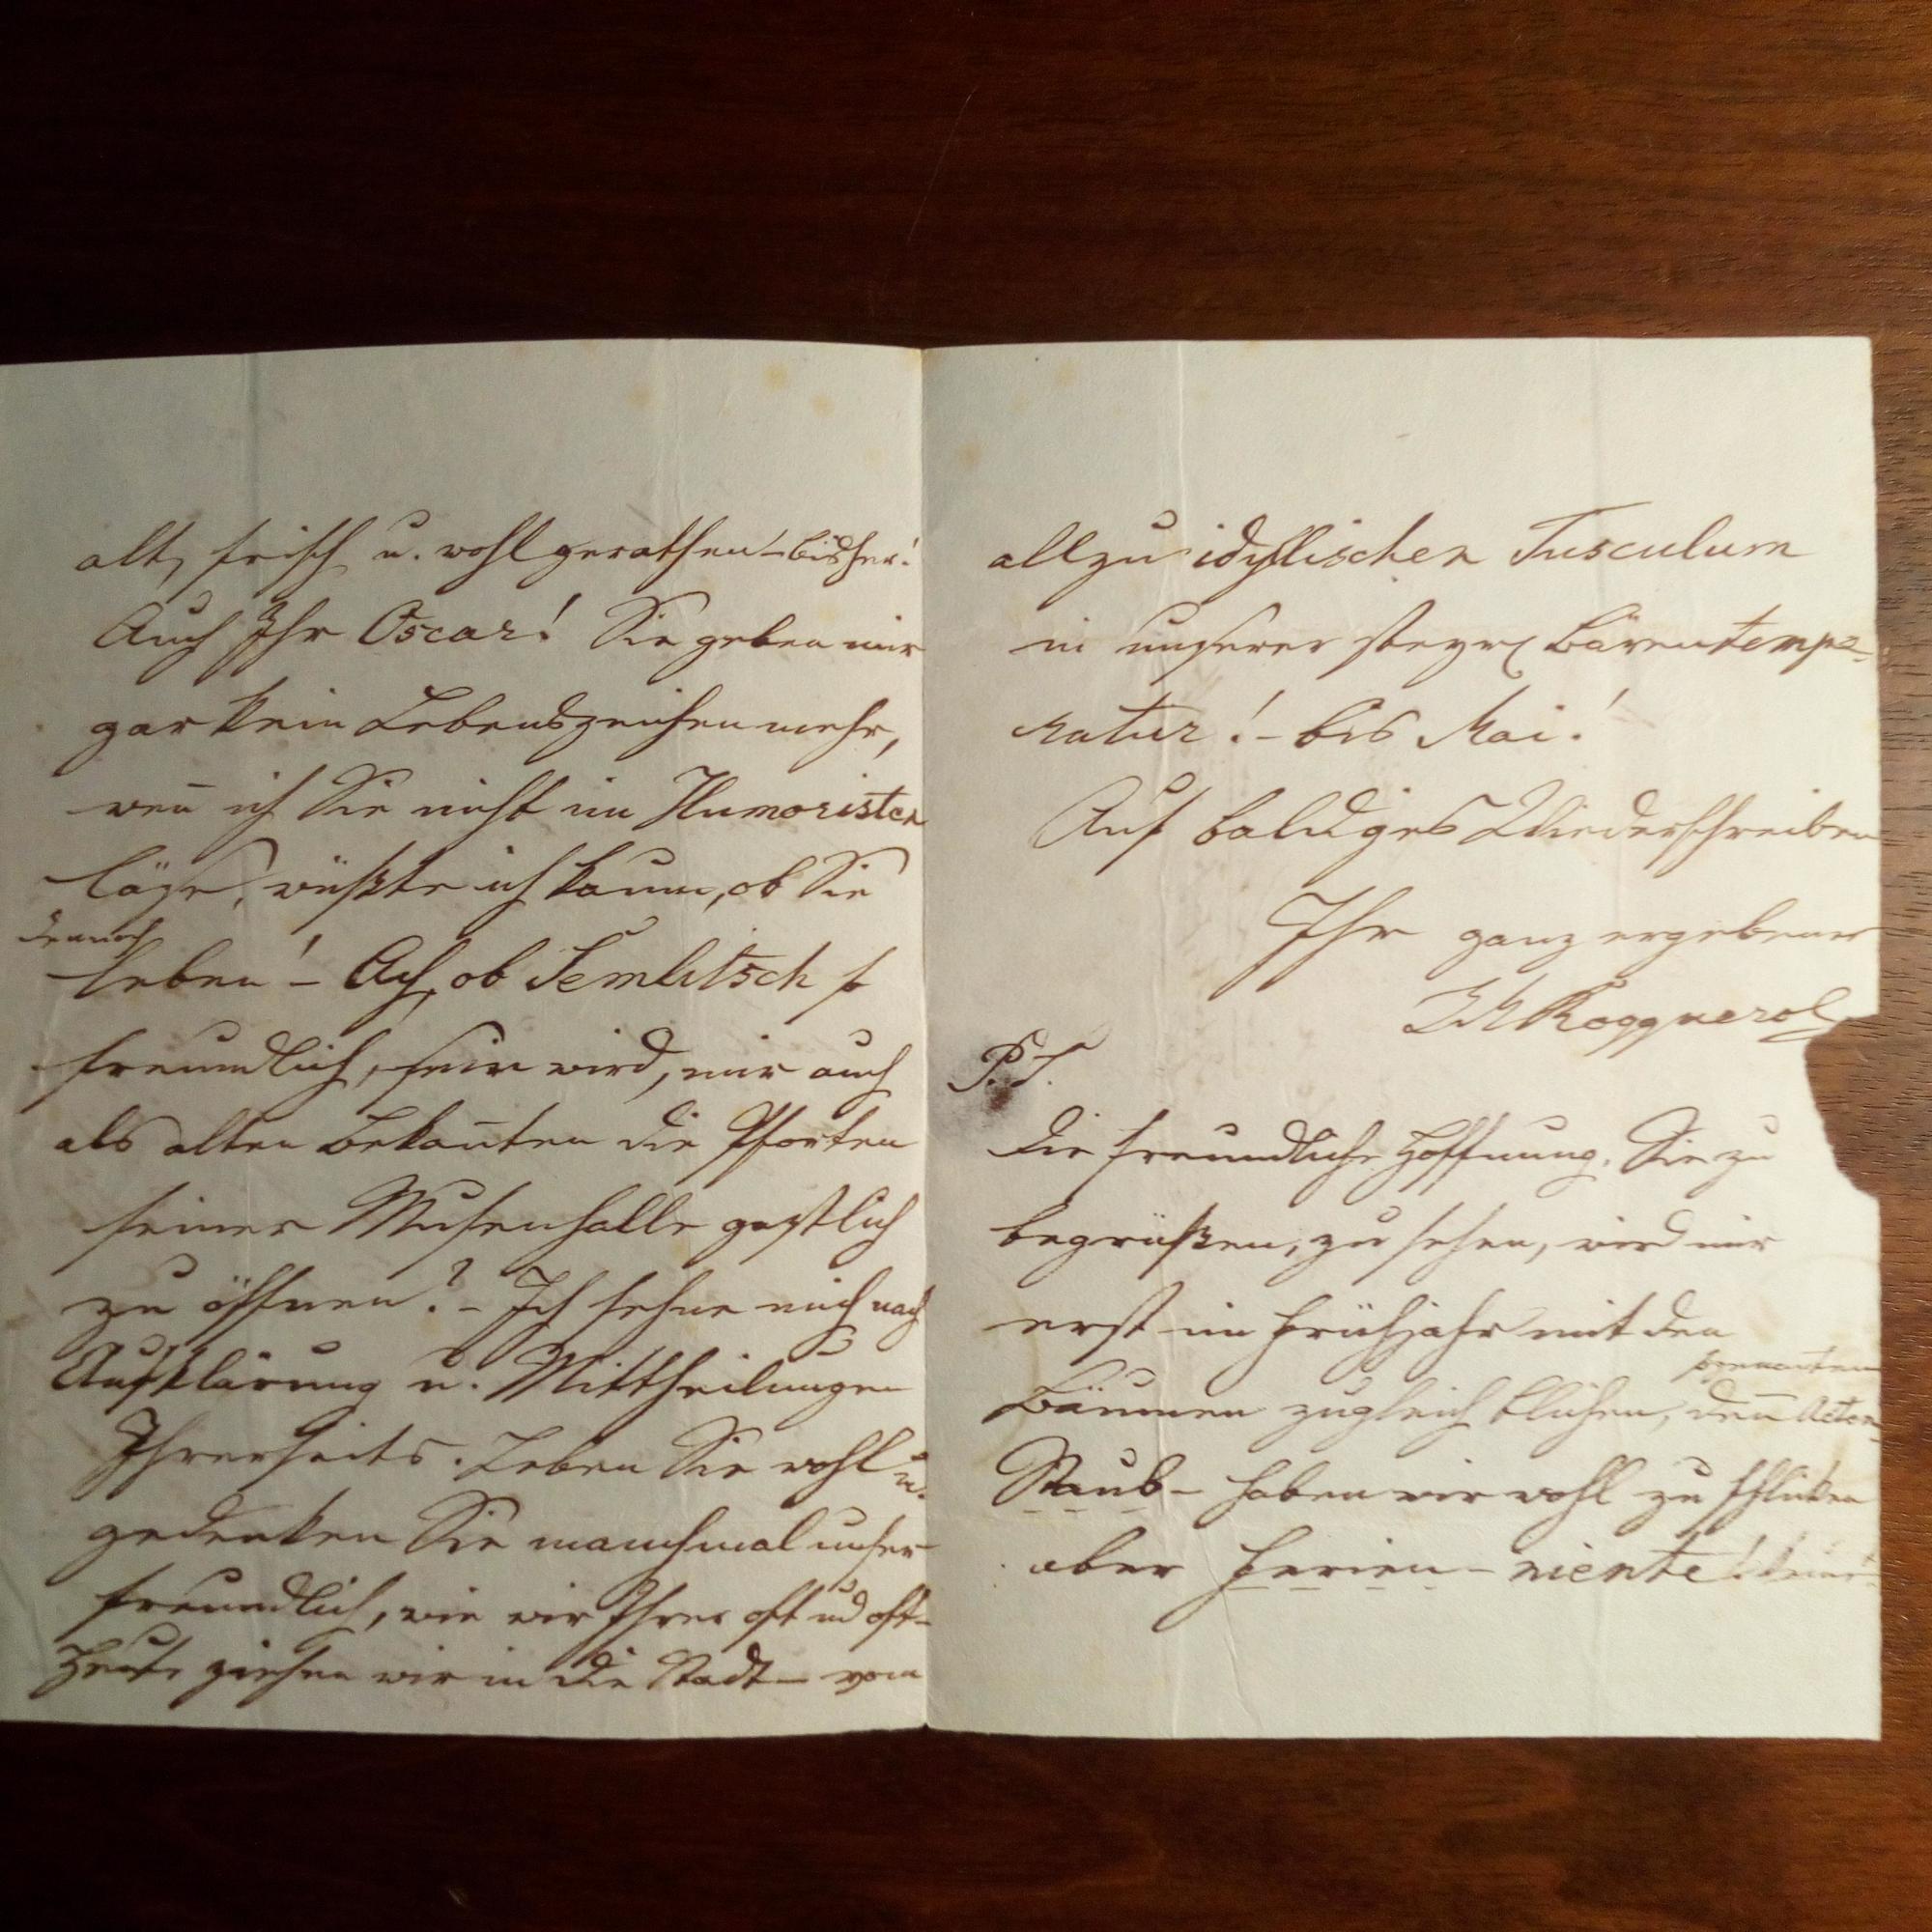 alt, frisch u. wohlgerathen – bisher!
Auch Ihr Oscar! Sie geben mir
gar kein Lebenszeichen mehr,
weñ ich Sie nicht im Humoristen
läse, wüßte ich kaum, ob Sie
dennoch
leben! – Ach, ob Semlitsch so
freundlich, sein wird, mir auch
als alten Bekañten die Pforten
seiner Musenhalle gastlich
zu öffnen? – Ich sehne mich nach
Aufklärung u. Mittheilungen
Ihrerseits. Leben Sie wohl u.
gedenken Sie manchmal unser
freundlich, wie wir Ihrer oft und oft –
Heute ziehen wir in die Stadt – vom
allzu idyllischen Tusculum
in unserer steyr. Bärentempe-
ratur! – bis Mai!
Auf baldiges Wiederschreiben
Ihr ganz ergebener
P.S.
Die freundliche Hoffnung, Sie zu
begrüßen, zu sehen, wird mir
erst im Frühjahr mit den
Bäumen zugleich blühen, deñ Acten-
Staub – haben wir wohl zu schlucken
aber Ferien – niente